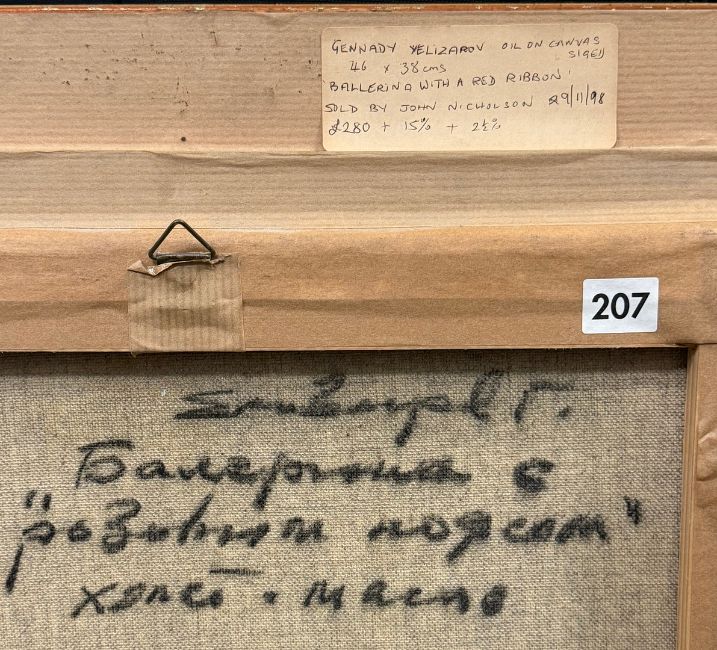 GENNADY YELIZAROV OIL ON CANVAS
SIGED
46 x 38 cms
BALLERINA WITH A RED RIBBON'
SOLD BY JOHN NICHOLSON 29/11/98
£280 + 15% + 2½%
207
Елизаров Г.
Балерина с
"розовым поясом"
холст. масло